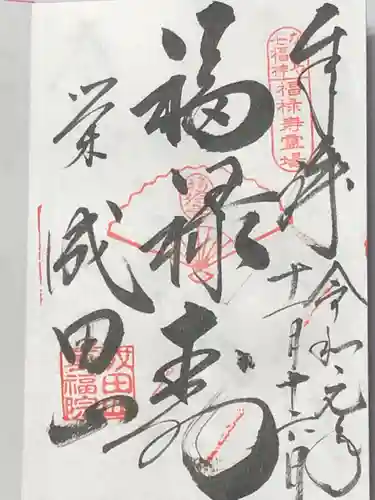 なごや
七福神
福禄寿霊場
奉拝
令和元年
十月十六日
福禄寿
栄 成田山
成田山
萬福院